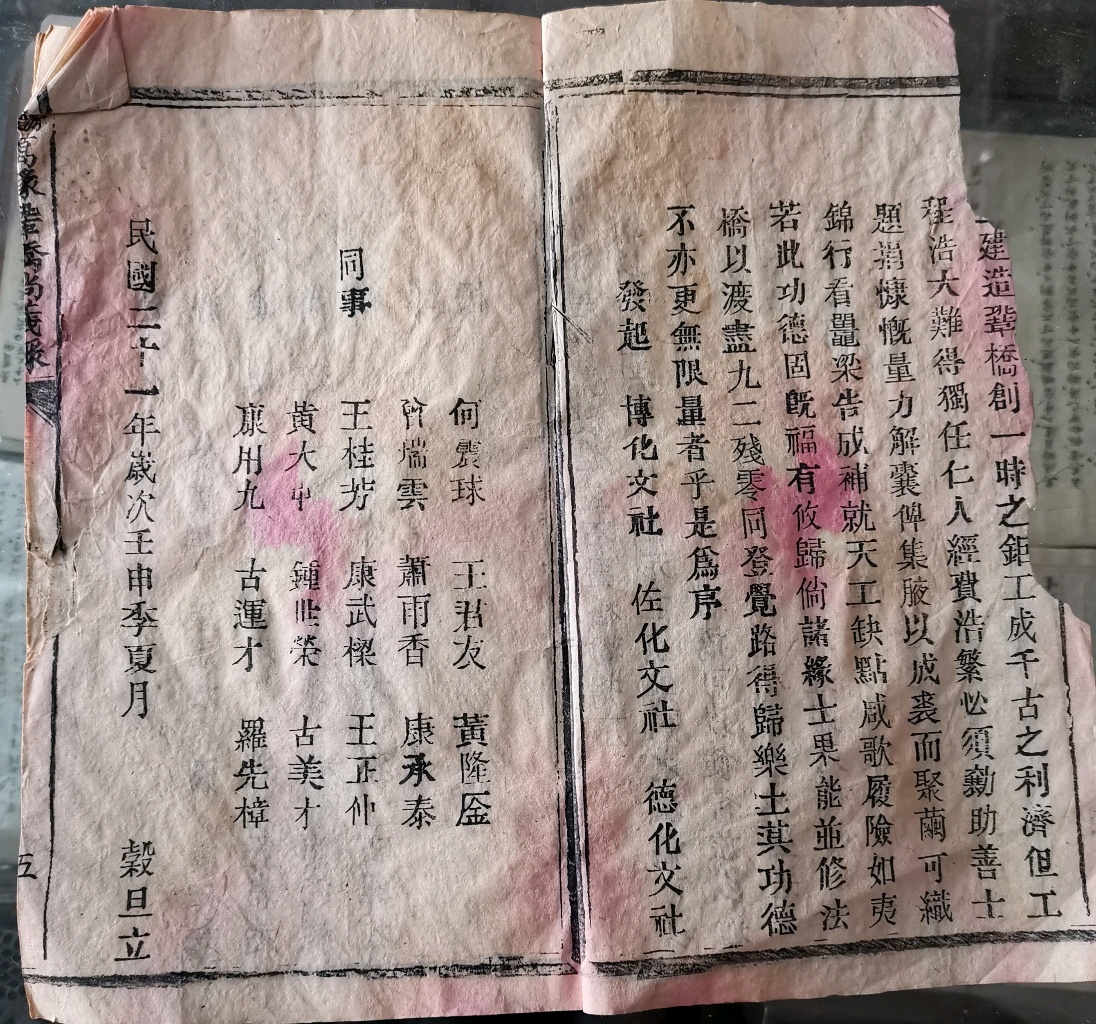 建造鞏橋創一時之鉅工成千古之利濟但工
程浩大難得獨任仁人經費浩繁必須勷助善士
題捐慷慨量力解囊俾集腋以成裘而聚繭可織
錦行看鼉梁告成補就天工缺點咸歌履險如夷
若此功德固既福有攸歸倘諸緣士果能並修法
橋以渡盡九二殘零同登覺路得歸樂土其功德
不亦更無限量者乎是爲序
發起 博化文社 佐化文社 德化文社
何震球 王君友 黃隆金
幹瑞雲 蕭雨香 康承泰
同事 王桂芳 康武樑 王正仲
黃大中 鍾世榮 古美才
康用九 古運才 羅先樟
民國二十一年歲次壬申季夏月 穀旦立
萬緣鞏橋尚義緣
五